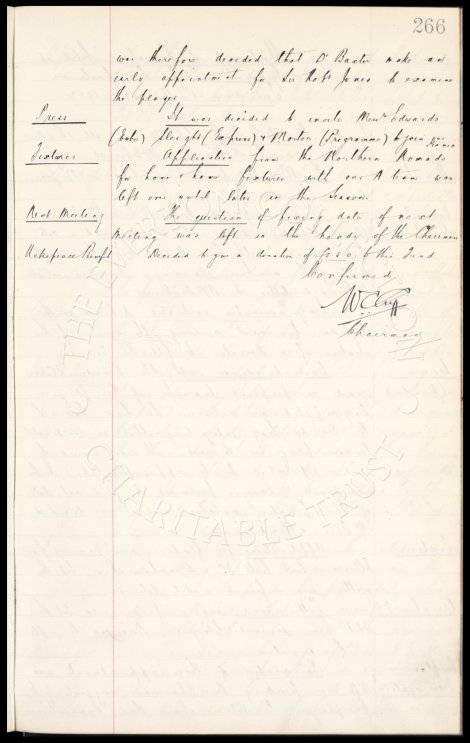 266
was therefore decided that Dr Baxter make an
early appointment for Sir Robt Jones to examine
the player.
Press It was decided to invite Messrs Edwards
(Echo) Sleight (Express) & Norton (Programme) to join our
Fixtures Application from the Northern Nomads
for home & home fixtures with our A team was
left over until later in the Season.
Next Meeting The question of fixing date of next
meeting was left in the hands of the Chairman
Makepeace Benefit Decided to give a donation of £250 to this Fund
Confirmed
W.C. Cuff
Chairman
THE EVERTON
CHARITABLE TRUST